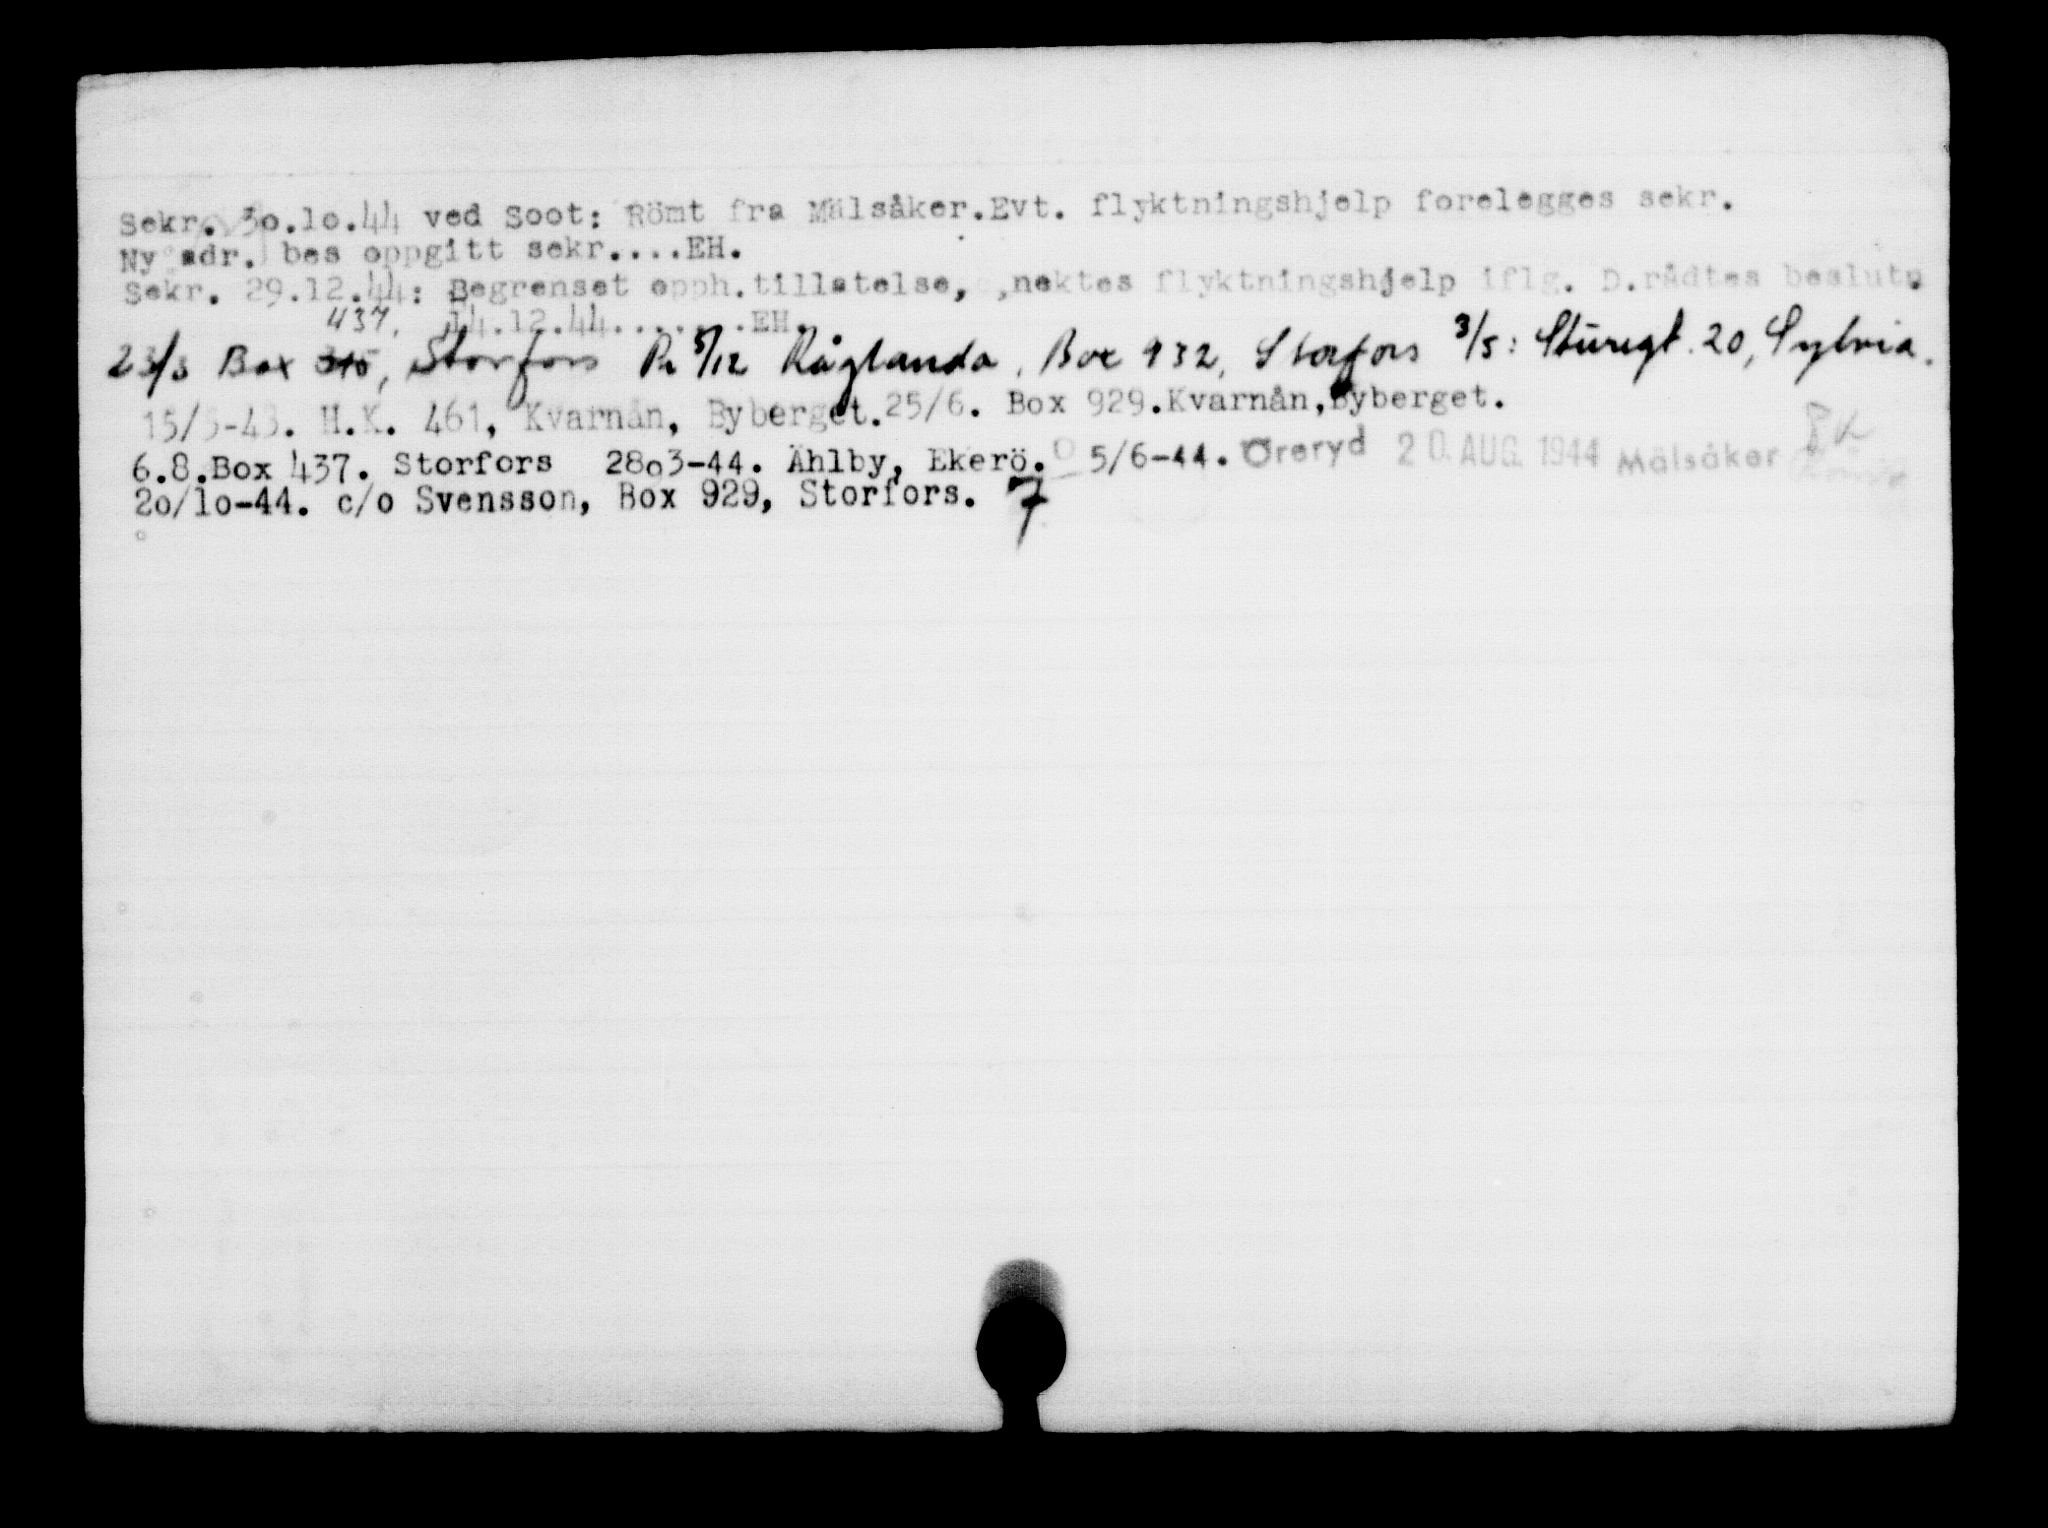 Sekr. 3o.lo.44 ved Soot: Römt fra Mälsåker.Evt. flyktningshjelp forelegges sekr.
Ny adr. bes oppgitt sekr....EH.
Sekr. 29.12.44: Begrenset opph.tillatelse, ,nektes flyktningshjelp iflg. D.rådtes beslutn
437. 14.12.44.......EH.
23/3 Box 345, Storfors Pr 5/12 Råglanda, Box 932, Storfors 3/5: Sturegt. 20, Sylvia.
15/5-43. H.K. 461, Kvarnån, Byberget.25/6. Box 929.Kvarnån,Byberget.
6.8.Box 437. Storfors 28o3-44. Ählby, Ekerö. 5/6-44. Öreryd 20. AUG. 1944 Mälsåker
2o/lo-44. c/o Svensson, Box 929, Storfors. 7